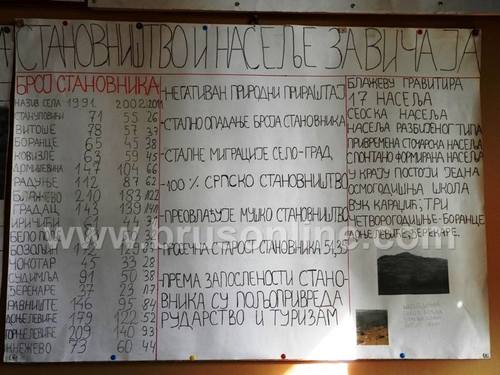 СТАНОВНИШТВО И НАСЕЉЕ ЗАВИЧАЈА
БРОЈ СТАНОВНИКА
НАЗИВ СЕЛА 1991. 2002. 2011
71 55 26
ВИТОШЕ 78 57 37
БОРАНЦЕ 65 45 38
КОВИЗЛЕ 63 59 45
147 104 66
РАДУЊЕ 112 87 62
БЛАЖЕВО 210 183 122
ГРАДАЦ 143 139
ИРИЧИЋИ
БЕЛО
БОЗОЉИН
ЧОКОТАР 33 28
СУДИМЉА 91 50 38
ЂЕРЕКАРЕ 37 23 17
РАВНИШТЕ 146 95 84
179 122 52
209 140 93
КНЕЖЕВО 73 60 44
-НЕГАТИВАН ПРИРОДНИ ПРИРАШТАЈ
-СТАЛНО ОПАДАЊЕ БРОЈА СТАНОВНИКА
-СТАЛНЕ МИГРАЦИЈЕ СЕЛО-ГРАД
-100 % СРПСКО СТАНОВНИШТВО
-ПРЕОВЛАЂУЈЕ МУШКО СТАНОВНИШТВО
-ПРОСЕЧНА СТАРОСТ СТАНОВНИКА 51,35
-ПРЕМА ЗАПОСЛЕНОСТИ СТАНО-
ВНИКА СУ ПОЉОПРИВРЕДА
РУДАРСТВО И ТУРИЗАМ
БЛАЖЕВУ ГРАВИТИРА
17 НАСЕЉА
СЕОСКА НАСЕЉА
НАСЕЉА РАЗБИЈЕНОГ ТИПА
ПРИВРЕМЕНА СТОЧАРСКА НАСЕЉА
СПОНТАНО ФОРМИРАНА НАСЕЉА
У КРАЈУ ПОСТОЈИ ЈЕДНА
ОСМОГОДИШЊА ШКОЛА
ВУК КАРАЏИЋ, ТРИ
ЧЕТВОРОГОДИШЊЕ-БОРАНЦЕ
ЂЕРЕКАРЕ.
www.brusonline.com